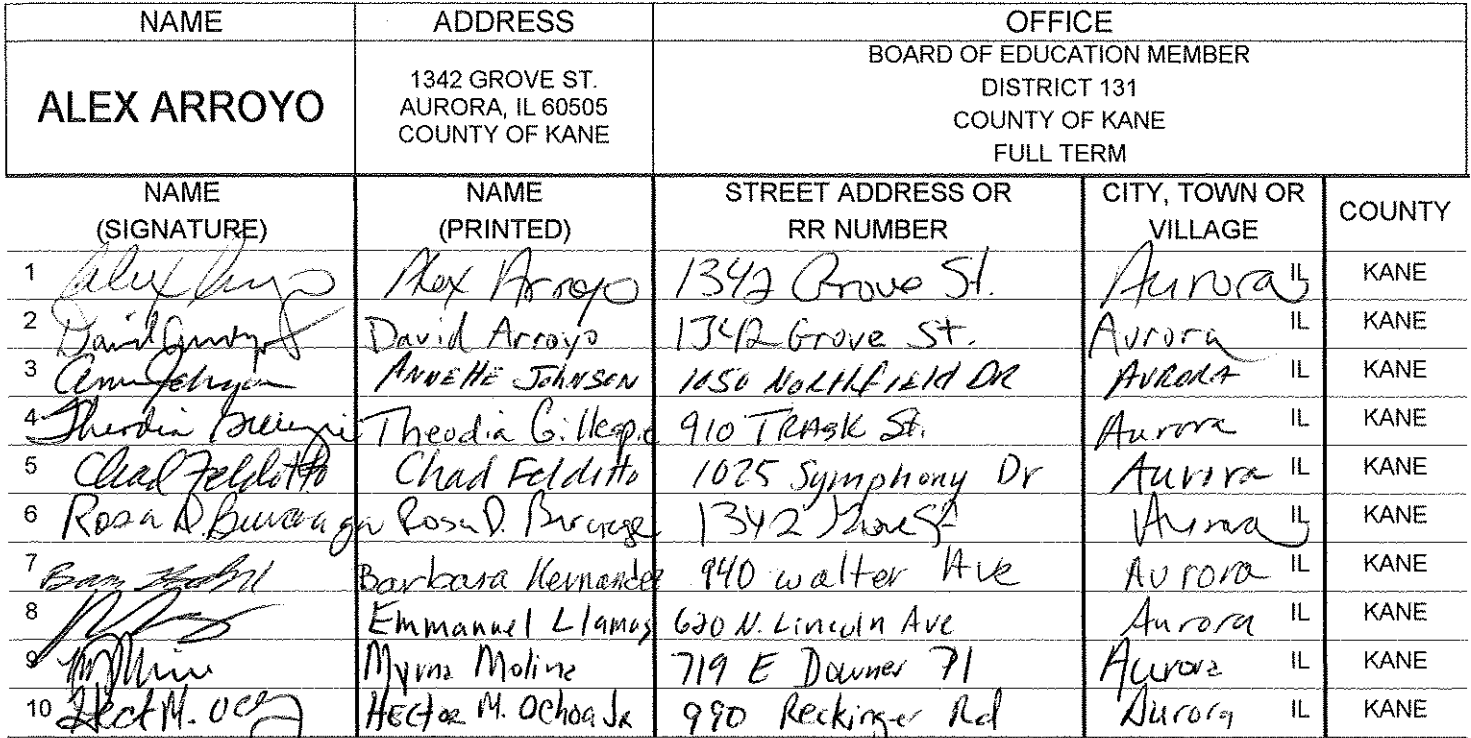 NAME ADDRESS OFFICE
ALEX ARROYO
1342 GROVE ST.
AURORA, IL 60505
COUNTY OF KANE
BOARD OF EDUCATION MEMBER
DISTRICT 131
COUNTY OF KANE
FULL TERM
NAME (SIGNATURE) NAME (PRINTED) STREET ADDRESS OR RR NUMBER CITY, TOWN OR VILLAGE COUNTY
1 Alex Arroyo 1342 Grove St. Aurora IL KANE
2 David Arroyo 1342 Grove St. Aurora IL KANE
3 ANNETTE JOHNSON 1050 NORTHFIELD DR AURORA IL KANE
4 Theodia Gillespie 910 TRASK St. Aurora IL KANE
5 Chad Felditto Chad Felditto 1025 Symphony Dr Aurora IL KANE
6 Rosa D. Rosa D. 1342 Grove St Aurora IL KANE
7 Barbara Hernandez 940 Walter Ave Aurora IL KANE
8 Emmanuel Llamas 620 N. Lincoln Ave Aurora IL KANE
9 Myrna Molina 719 E Downer Pl Aurora IL KANE
10 Hect M. HECTOR M. Ochoa JR 990 Reckinger Rd Aurora IL KANE